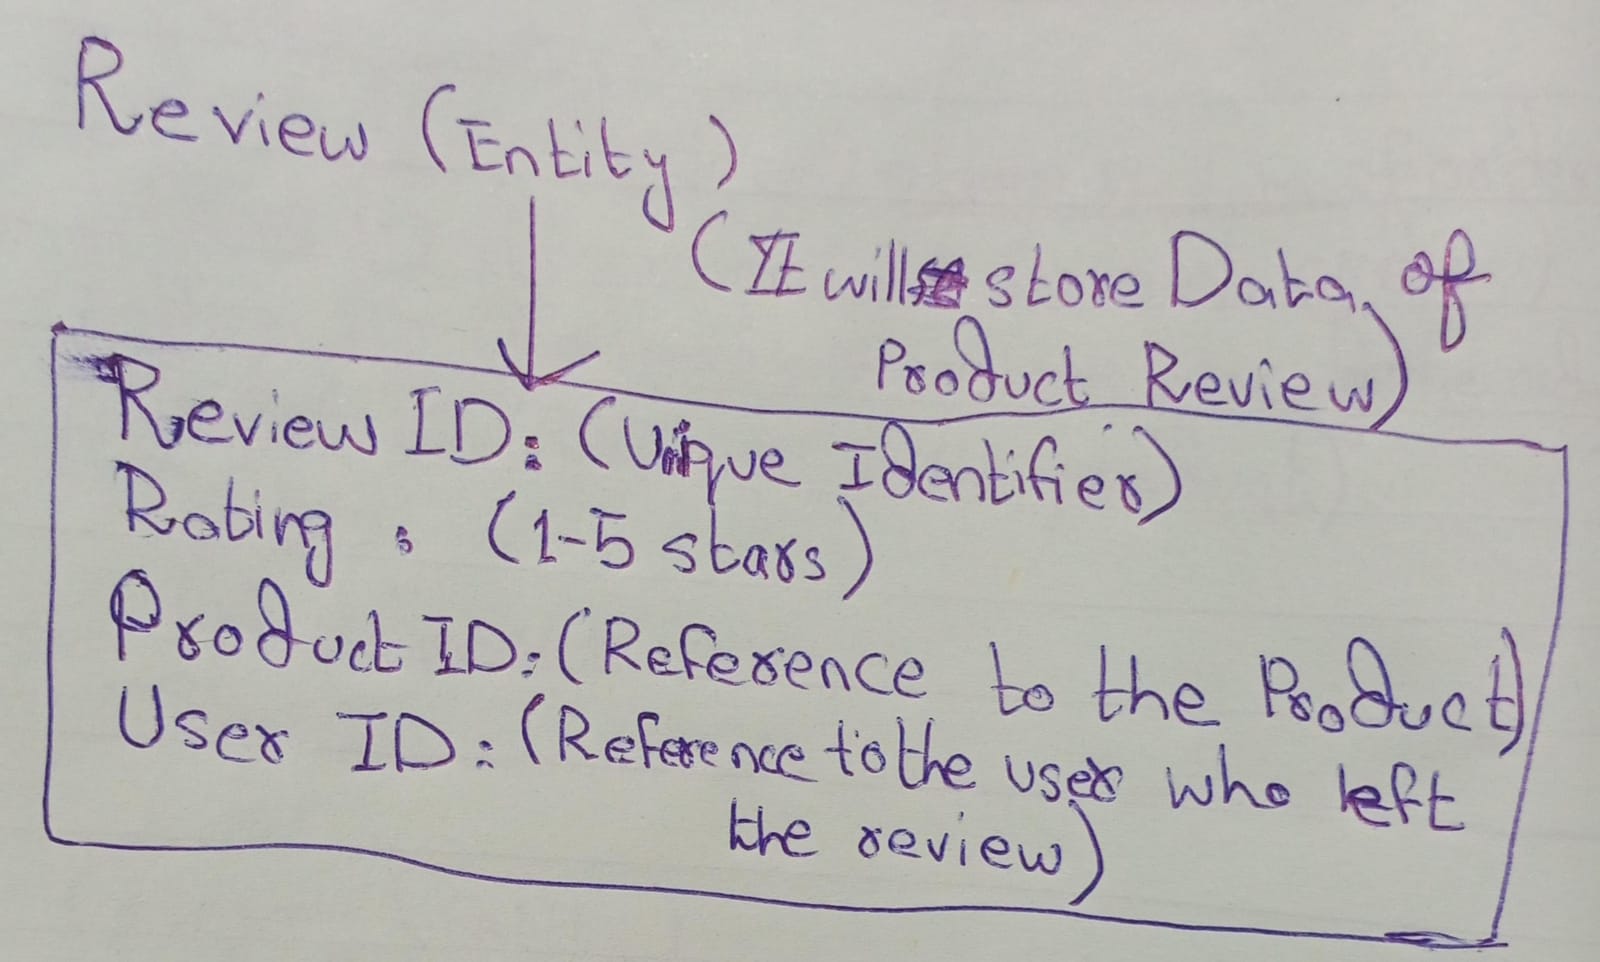 Review (Entity)
(It will store Data of
Product Review)
Review ID: (Unique Identifier)
Rating : (1-5 stars)
Product ID: (Reference to the Product)
User ID: (Reference to the user who left
the review)